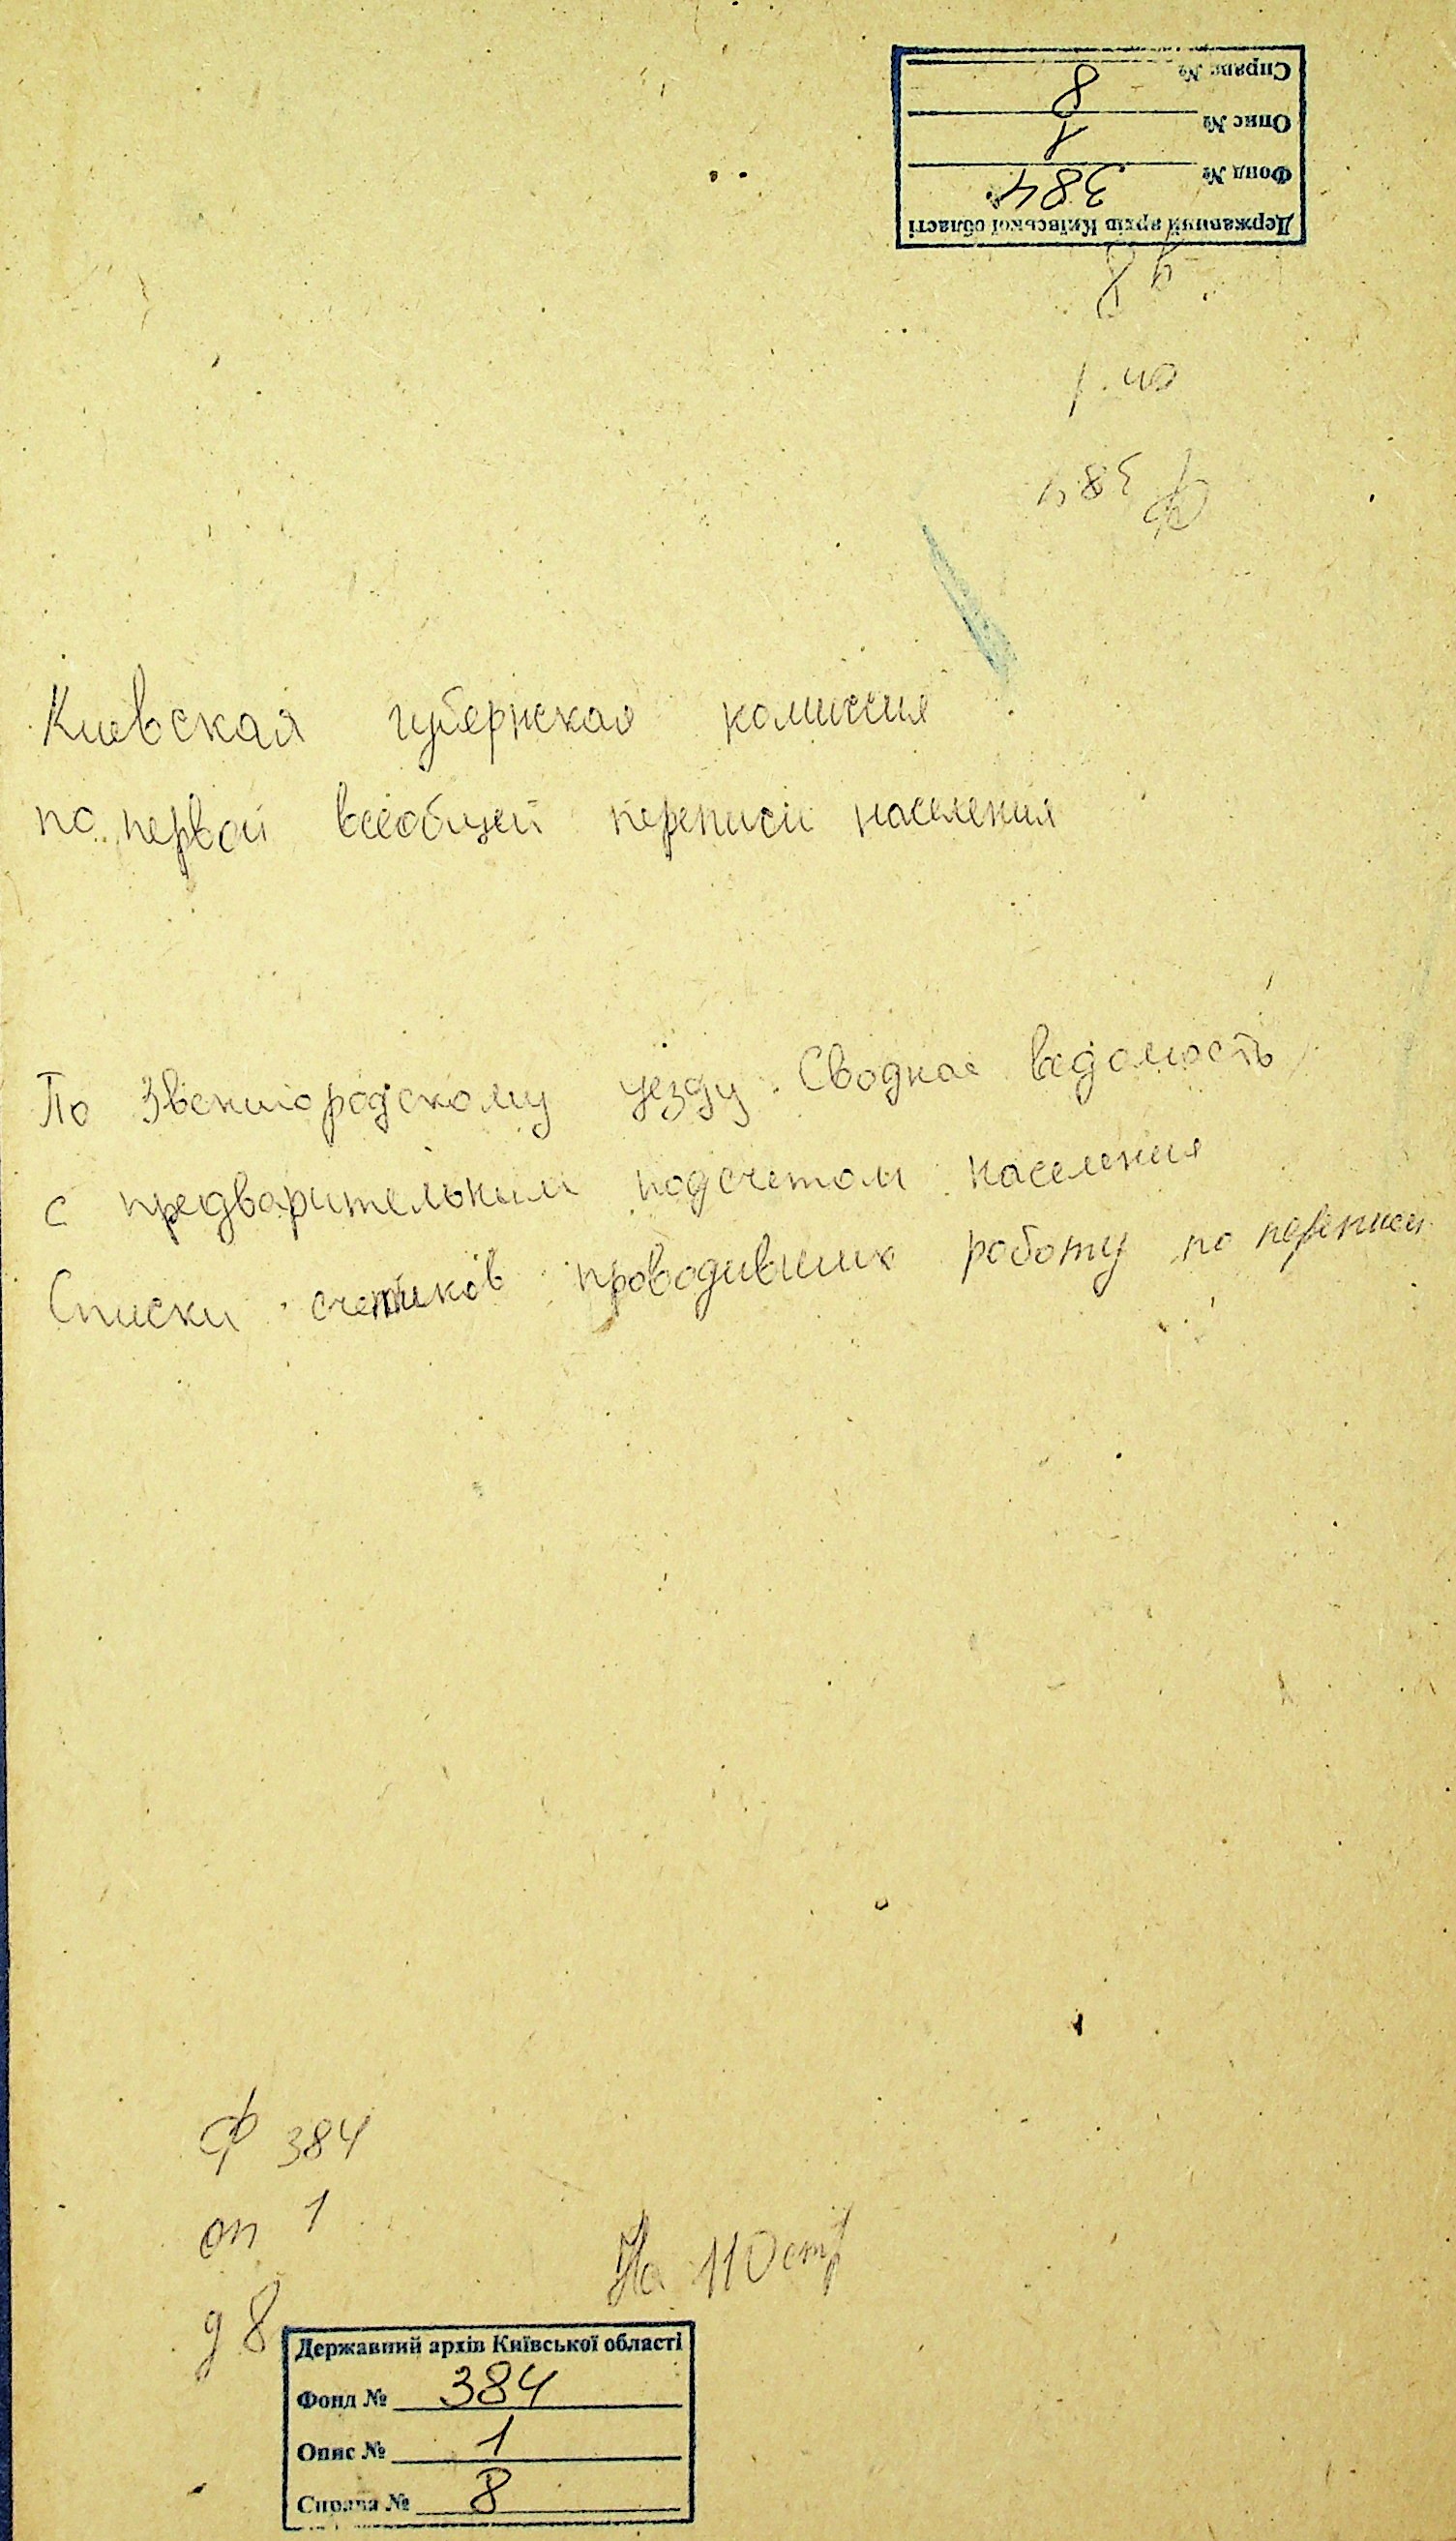 Державний архів Київської області
Фонд № 384
Опис № 1
Справа № 8
д 8
оп. 1
Ф 384
Киевская губернская комиссия
по первой всеобщей переписи населения
По Звенигородскому уезду. Сводная ведомость
с предварительным подсчетом населения
Списки счетчиков проводивших работу по переписи
Ф 384
оп 1
д 8
На 110 стр
Державний архів Київської області
Фонд № 384
Опис № 1
Справа № 8